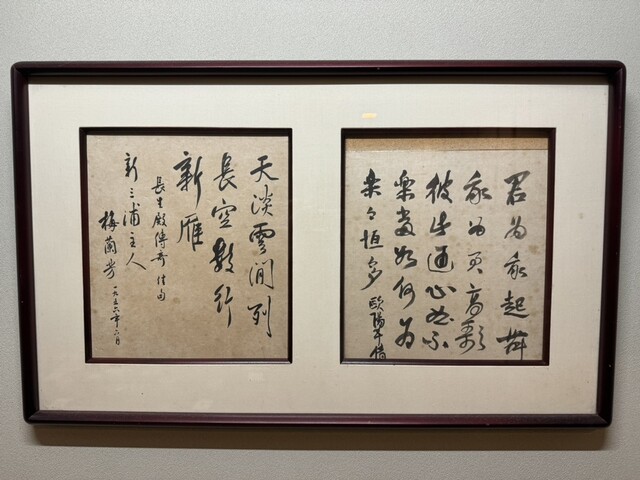 君为我起舞
我为君高歌
彼此通心曲不
樂當如何为
樂々恒多 歐陽予倩
天淡雲閒列
長空數行
新雁
長生殿傳奇佳句
新三浦主人
梅蘭芳 一九五六年六月